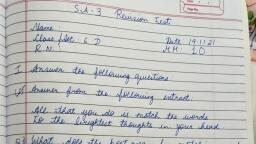 S.A-3 Revision Test
Name
Class/Sec: 6 D Date: 19.11.21
R.N. MM 10
I Answer the following questions
Answer from the following extract:
All that you do is match the words
To the brightest thoughts in your head
What does the poet